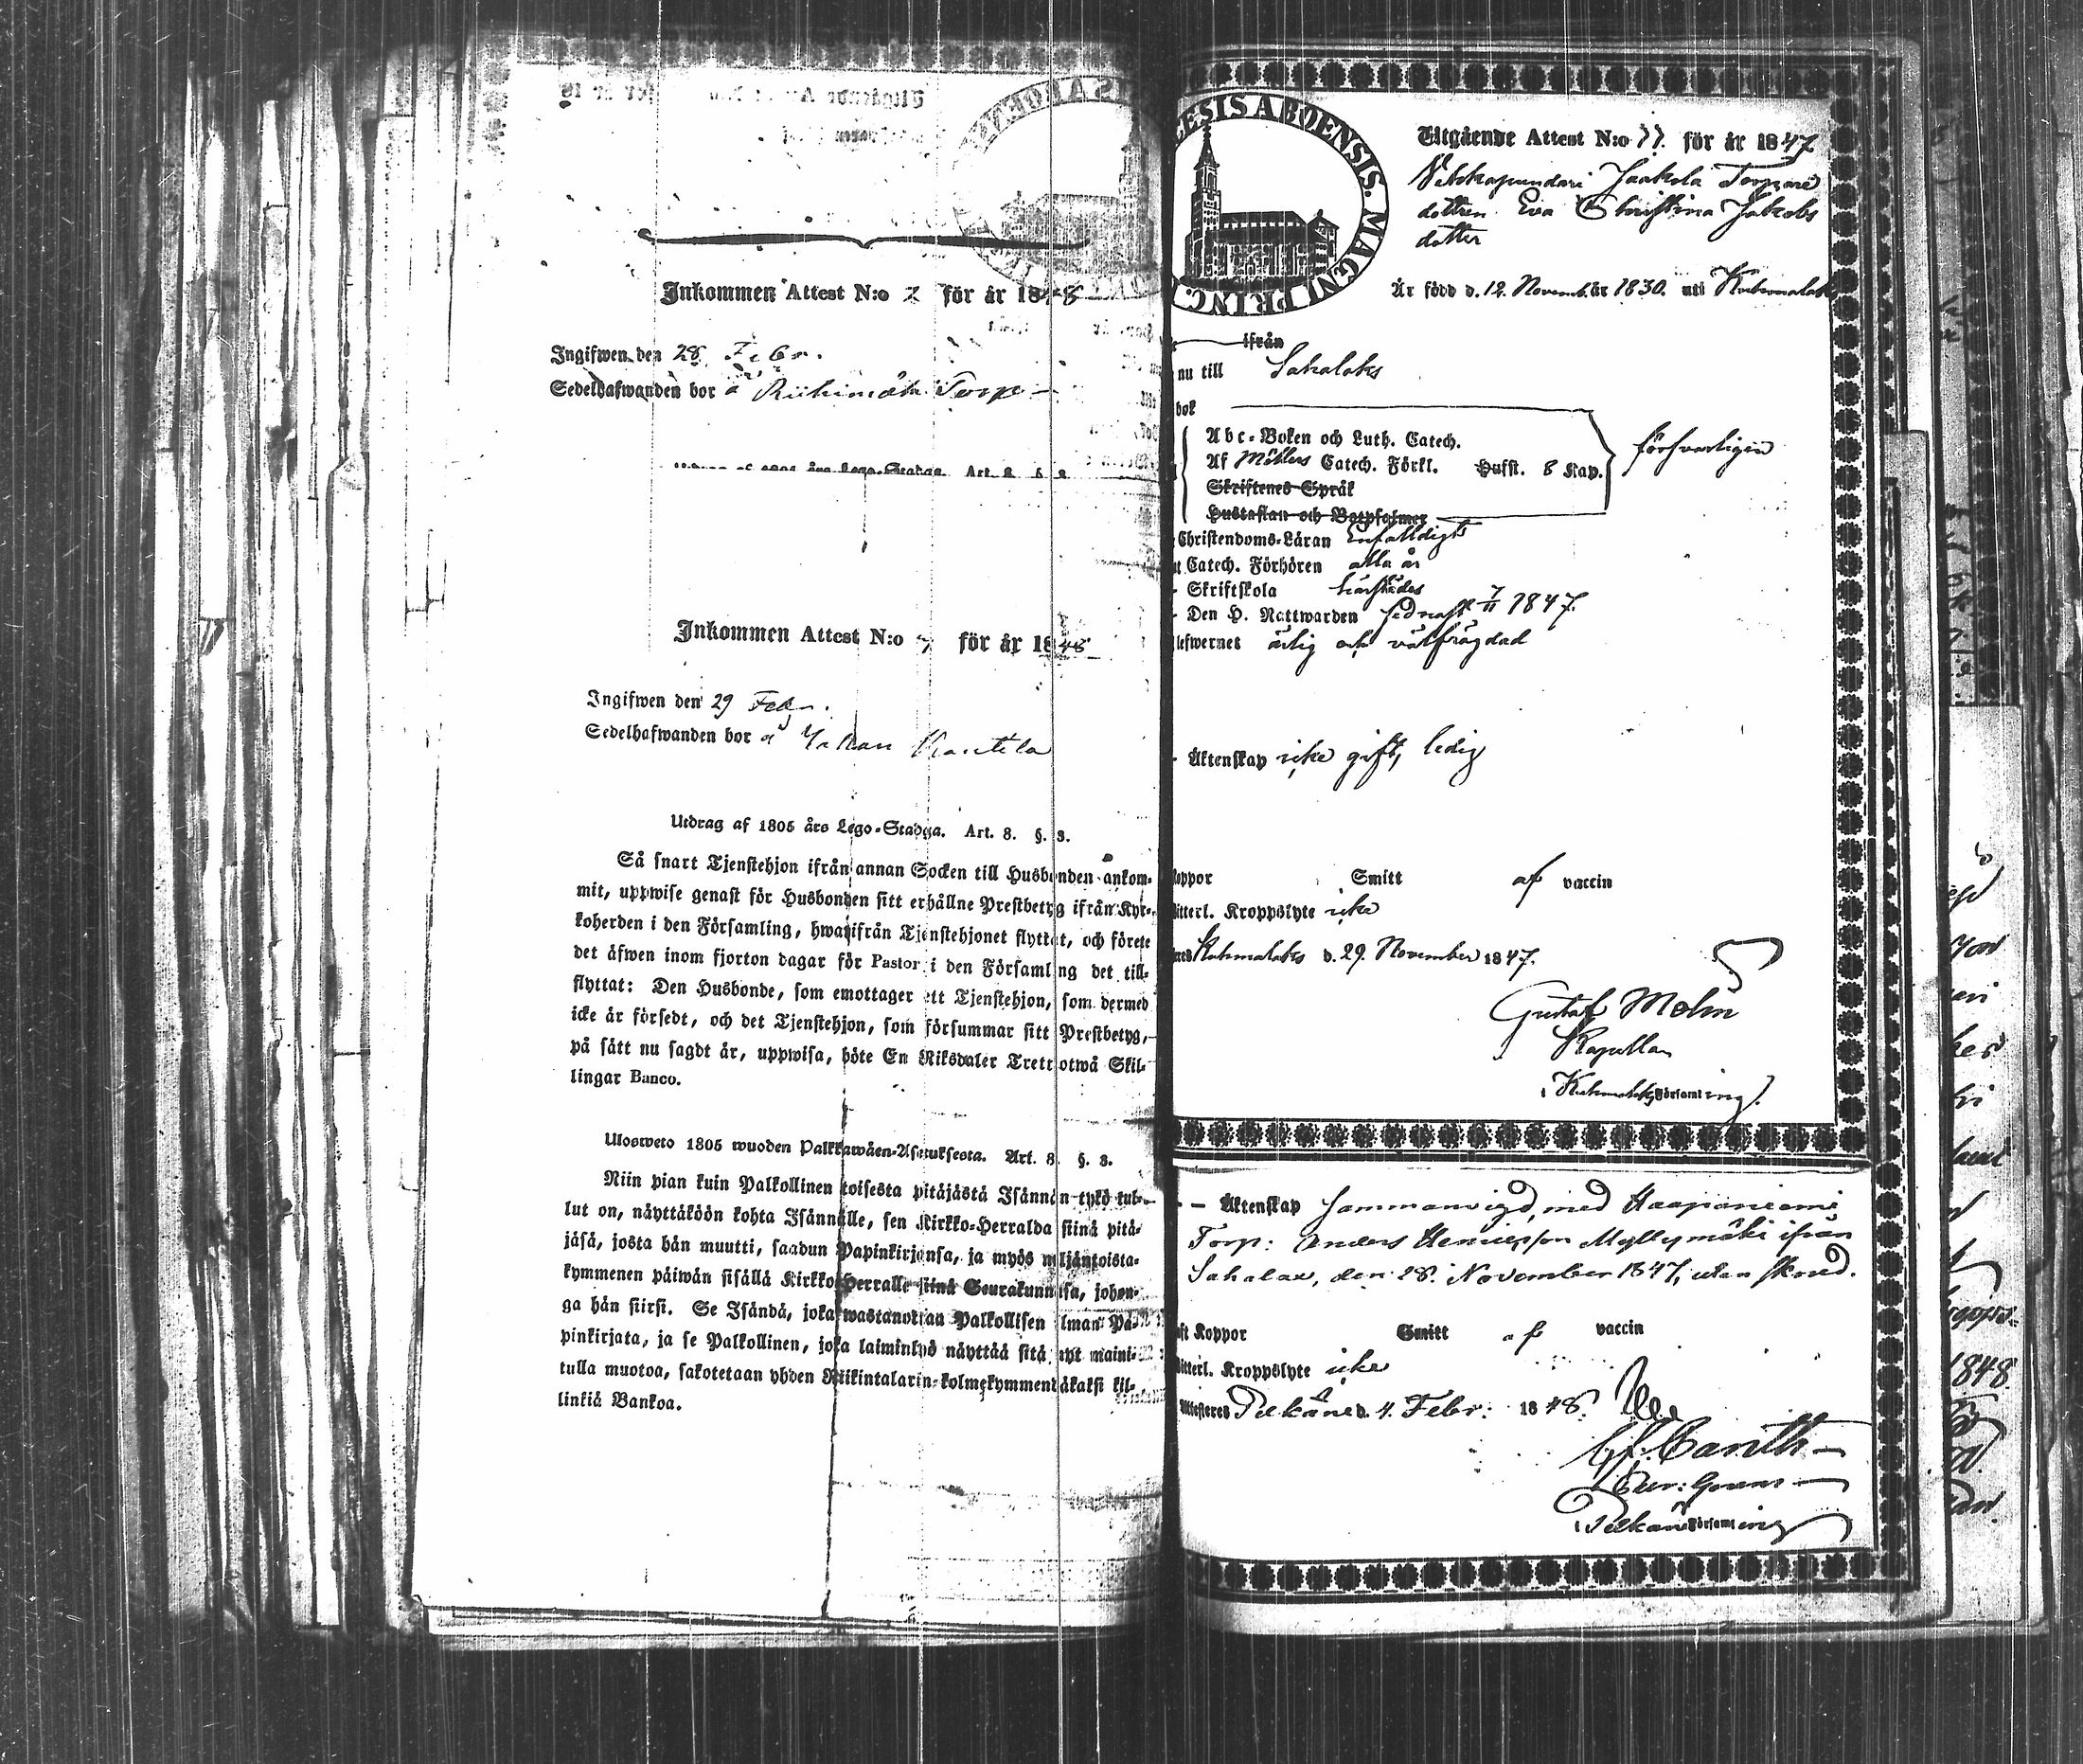 Inkommen Attest N:o 2 för år 1848
Ingifwen den 28 Febr.
Sedelhafwanden bor å Riihimäki Torp
Utdrag af 1805 års Lego-Stadga. Art. 8. §. 3.
Inkommen Attest N:o för år 1848
Ingifwen den 29 Febr.
Sedelhafwanden bor å
Utdrag af 1805 års Lego-Stadga. Art. 8. §. 3.
Så snart Tjenstehjon ifrån annan Socken till Husbonden ankom-
mit, uppwise genast för Husbonden sitt erhållne Prestbetyg ifrån Kyr-
koherden i den Församling, hwarifrån Tjenstehjonet flyttat, och förete
det äfwen inom fjorton dagar för Pastor i den Församling det till-
flyttat: Den Husbonde, som emottager ett Tjenstehjon, som dermed
icke är försedt, och det Tjenstehjon, som försummar sitt Prestbetyg,
på sätt nu sagdt är, uppwisa, böte En Riksdaler Trettiotwå Skil-
lingar Banco.
Ulosweto 1805 wuoden Palkkawäen-Asetuksesta. Art. 8. §. 3.
Niin pian kuin Palkollinen toisesta pitäjästä Isännän tykö tul-
lut on, näyttäköön kohta Isännälle, sen Kirkko-Herralda siinä pitä-
jäsä, josta hän muutti, saadun Papinkirjansa, ja myös neljäntoista-
kymmenen päiwän sisällä Kirkko-Herralle siinä Seurakunnasa, johon-
ga hän siirsi. Se Isändä, joka wastanottaa Palkollisen ilman Pa-
pinkirjata, ja se Palkollinen, joka laiminlyö näyttää sitä nyt maini-
tulla muotoa, sakotetaan yhden Riikintalarin kolmekymmentäkaksi kil-
linkiä Bankoa.
ESIS ABOENSIS. MAGNI PRINC.
Utgående Attest N:o 77. för år 1847
Jaakola Torpare
dottren Eva Christina Jakobs
dotter
Är född d. 12. Novemb. år 1830. uti Kuhmalaks
ifrån
nu till Sahalaks
bok
Abc-Boken och Luth. Catech.
Af Möllers Catech. Förkl. Hufst. 8 Kap. försvarligen
Skriftenes Språk
Hustaflan och Botpsalmer
Christendoms-Läran enfaldigt
Catech. Förhören alla år
Skriftskola härstädes
Den H. Nattwarden sednast 7/11 1847.
lefwernet ärlig och välfrägdad
Äktenskap icke gift, ledig
koppor Smitt af vaccin
Witterl. Kroppslyte icke
Kuhmalaks d. 29. November 1847.
Gustaf Molin
Kapellan
i Kuhmalaks Församling.
Äktenskap Sammanvigd, med Haapaniemi
Torp: Anders Henricsson Myllymäki ifrån
Sahalax, den 28. November 1847, utan skrud.
Koppor Smitt af vaccin
Witterl. Kroppslyte icke
Attesteres Pelkäne d. 4. Febr: 1848.
i Pelkäne Församling